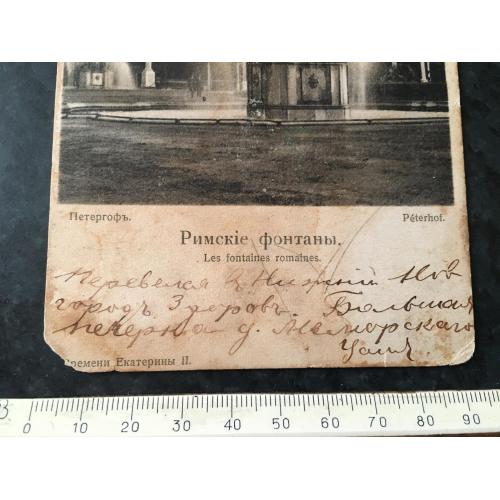 Петергофъ. Péterhof.
Римскіе фонтаны.
Les fontaines romaines.
Перевелся в Нижній Нов
городъ. Здоровъ. Большая
печерка д.
Времени Екатерины II.
0 10 20 30 40 50 60 70 80 90